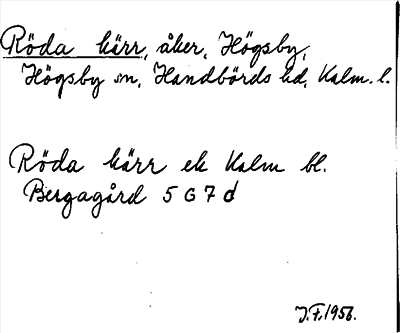 Röda kärr, åker, Högsby,
Högsby sn, Handbörds hd, Kalm. l.
Röda kärr ek Kalm bl.
Bergagård 5 G 7 d
J.F. 1956.